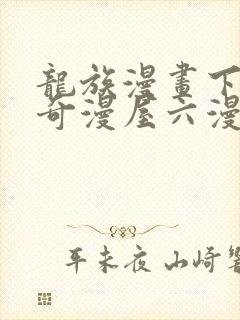 龍族漫畫下
奇漫屋六漫
平未夜 山崎響